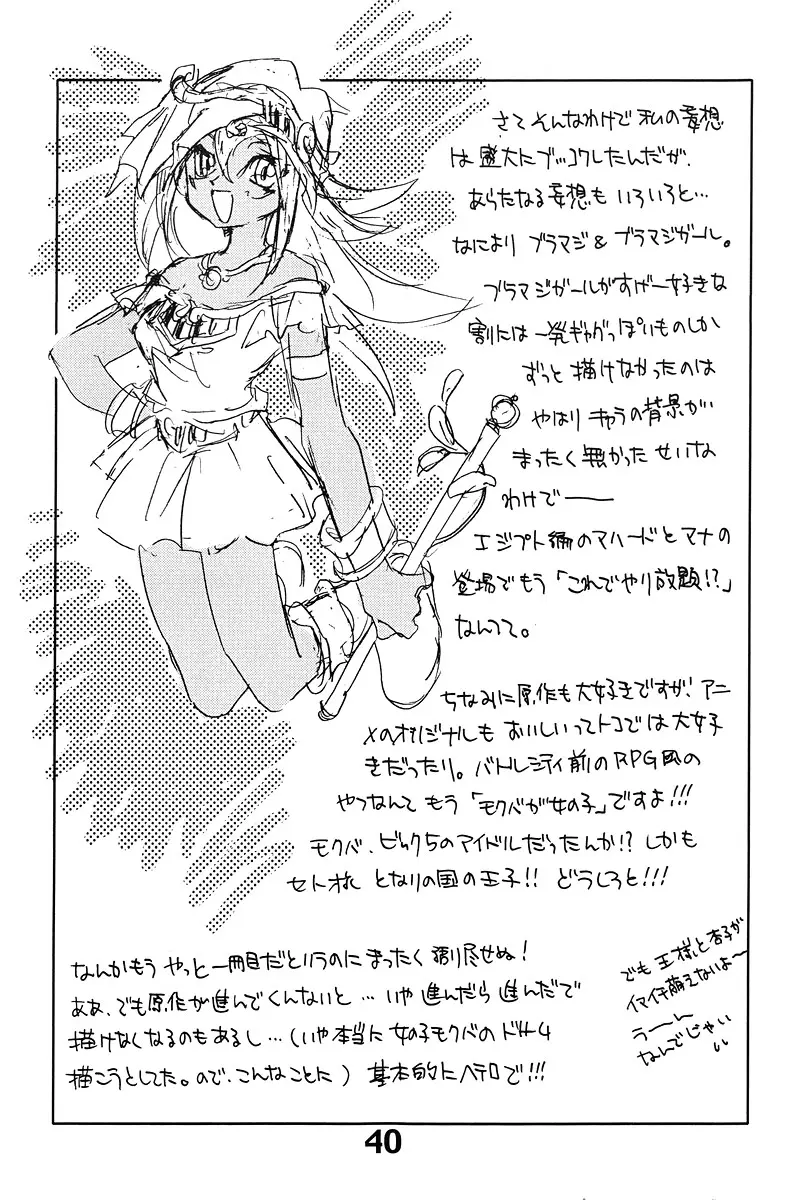 さてそんなわけで私の妄想
は盛大にブッコワしたんだが、
あらたなる妄想もいろいろと…
なにより ブラマジ & ブラマジガール。
ブラマジガールがすげー好きな
割には一発ギャグっぽいものしか
ずっと描けなかったのは
やはりキャラの背景が
まったく無かったせいな
わけで――
エジプト編のマハードとマナの
登場でもう「これでやり放題!?」
なんてて。
ちなみに原作も大好きですが、アニ
メのオリジナルもおいしいってトコでは大好
きだったり。バトルシティ前のRPG風の
やつなんてもう「モクバが女の子」ですよ!!!
モクバ、ビック5のアイドルだったんか!? しかも
セト様 となりの国の王子!! どうしろと!!!
なんかもう やっと一冊目だというのにまったく 語り尽せぬ!
ああ、でも原作が進んでくんないと… いや 進んだら 進んだで
描けなくなるのもあるし…(いや本当に 女の子モクバの
描こうとしてた。ので、こんなことに) 基本的にヘテロで!!!
でも 王様と杏子が
イマイチ萌えないよ〜
うーーん
なんでじゃい
40